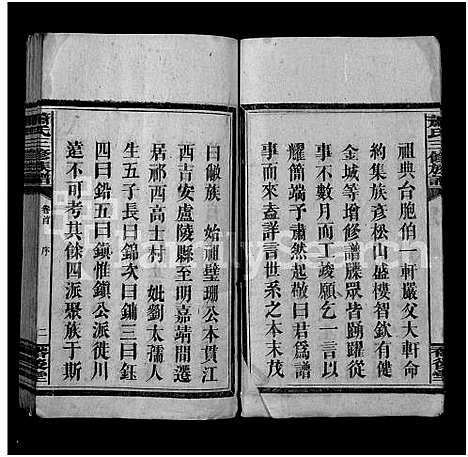 祖典台胞伯一軒嚴父大軒命
約集族彥松山盛樓初欽有健
金城等塘修譜牒眾皆踴躍從
事不數月而工竣願乞一言以
耀簡端予肅然起敬曰君為譜
事而來盍詳言世系之本末茂
曰敝族 始祖壁珊公本貫江
西吉安盧陵縣至明嘉靖間遷
居祁西高士村 妣劉太孺人
生五子長曰錦次曰鏞三曰鈺
四曰鉛五曰鎮惟鎮公派徙川
遠不可考其餘四派聚族于斯
蕭氏三修族譜
卷首 序 二
FamilySearch